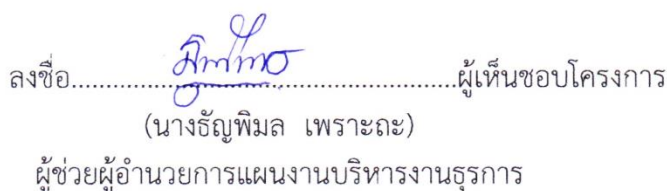 ลงชื่อ................................................ผู้เห็นชอบโครงการ
(นางธัญพิมล เพราะถะ)
ผู้ช่วยผู้อำนวยการแผนงานบริหารงานธุรการ